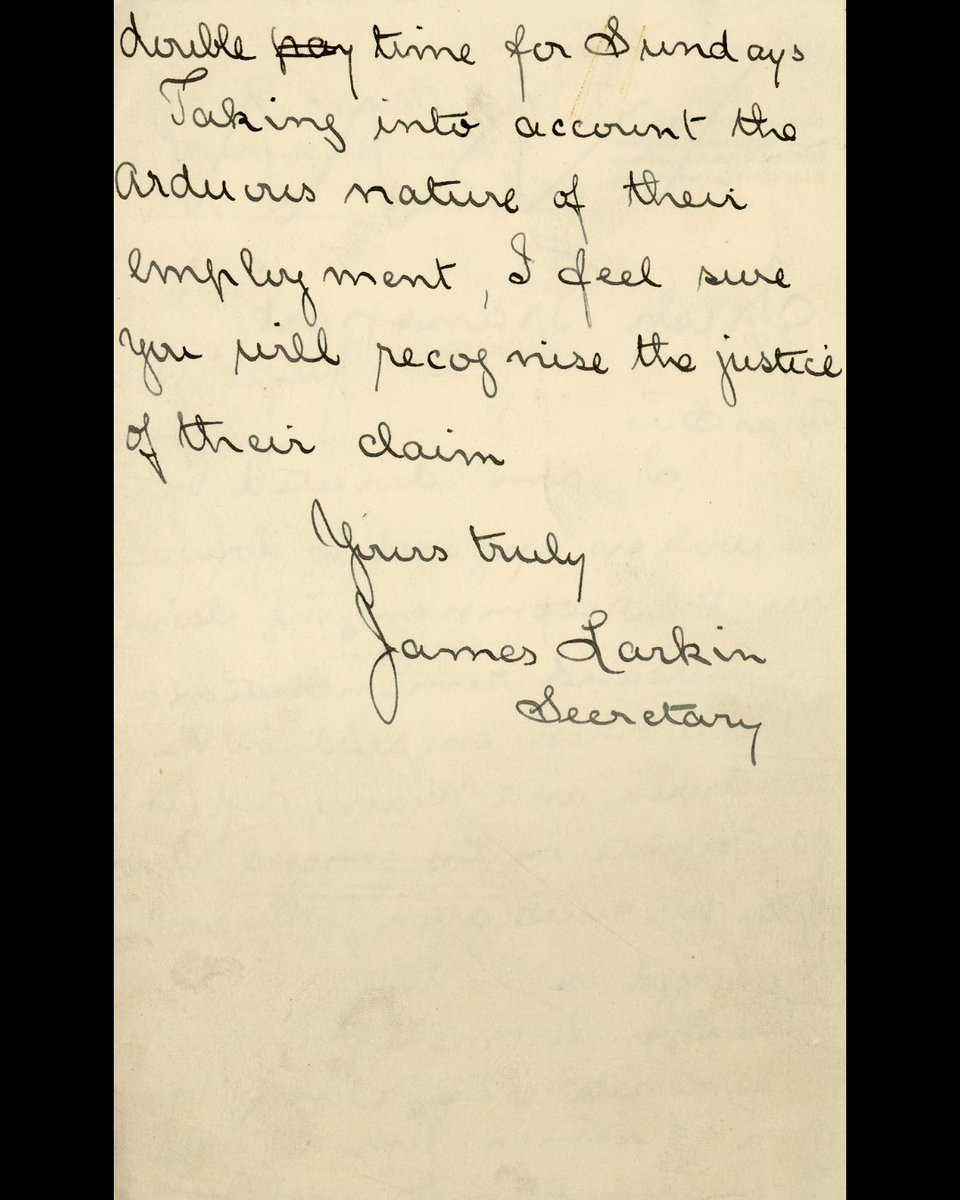 double pay time for Sundays
Taking into account the
arduous nature of their
employment, I feel sure
you will recognise the justice
of their claim
Yours truly
James Larkin
Secretary